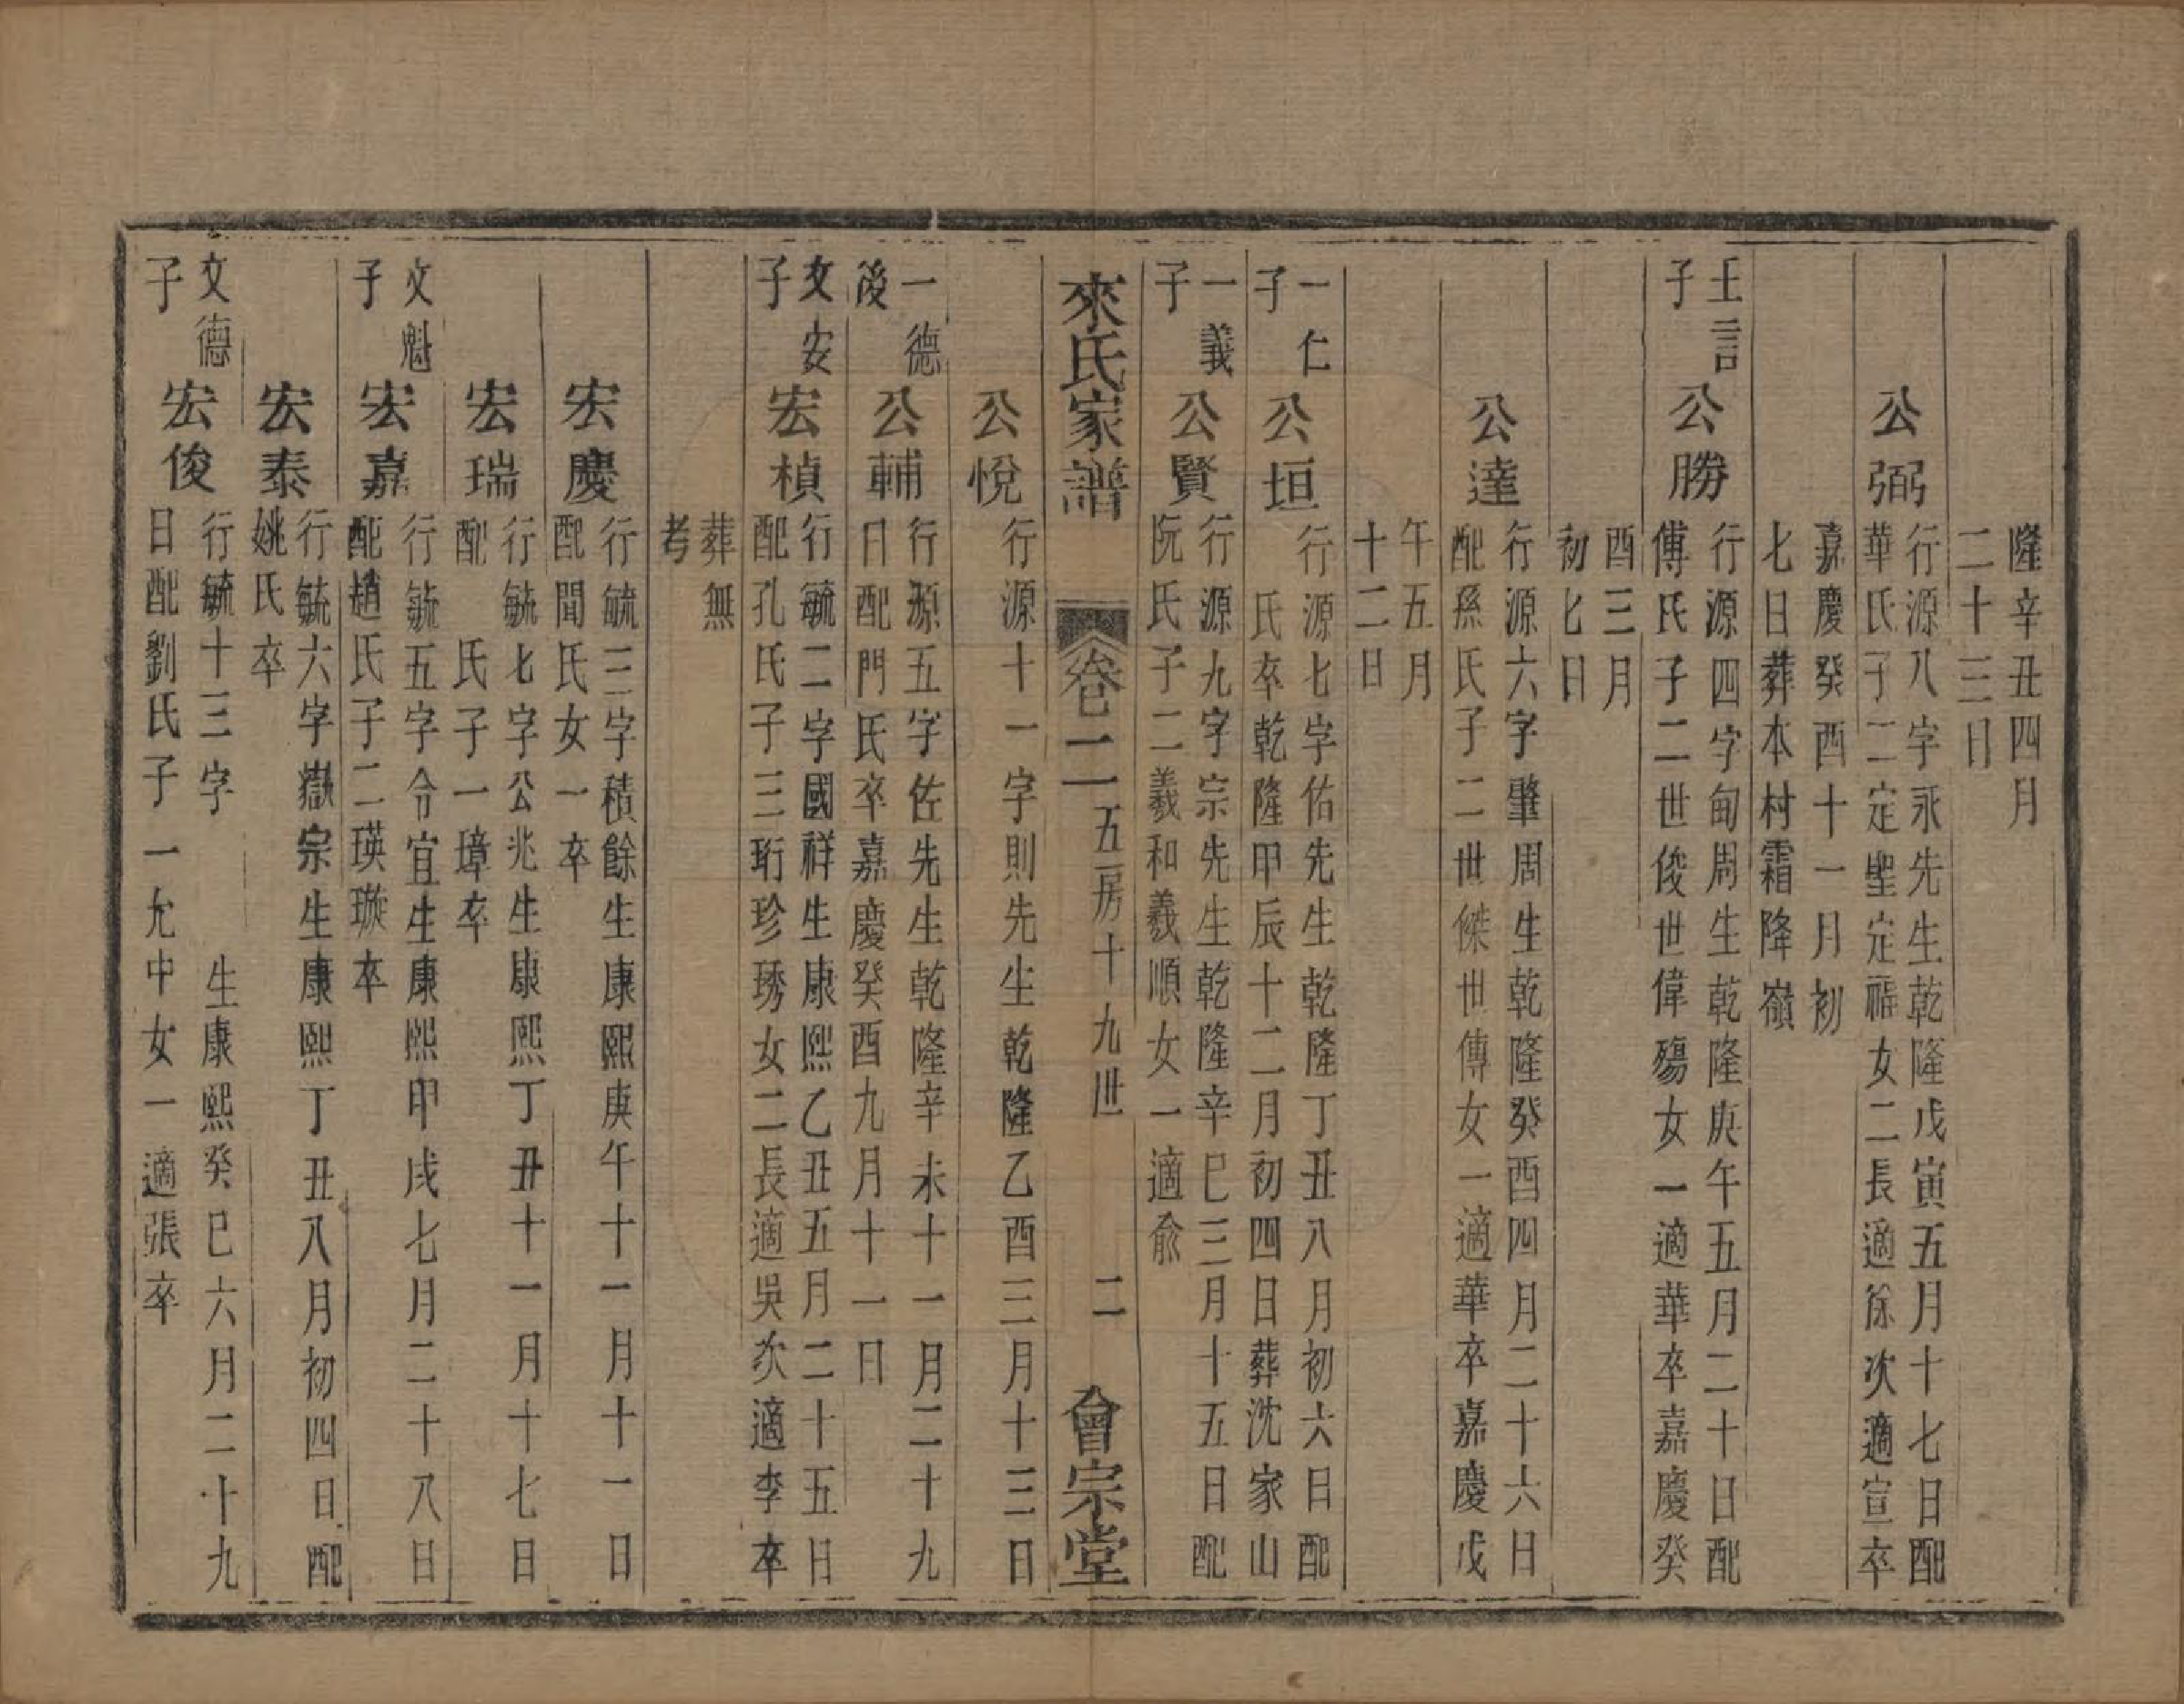 隆辛丑四月
二十三日
公弼
行源八字永先生乾隆戊寅五月十七日配
華氏子二定聖定福女二長適徐次適宣卒
嘉慶癸酉十一月初
七日葬本村霜降嶺
壬言
子
公勝
行源四字甸周生乾隆庚午五月二十日配
傅氏子二世俊世偉殤女一適華卒嘉慶癸
酉三月
初七日
公達
行源六字肇周生乾隆癸酉四月二十六日
配孫氏子二世傑世傳女一適華卒嘉慶戊
午五月
十二日
一仁
子
公垣
行源七字佑先生乾隆丁丑八月初六日配
氏卒乾隆甲辰十二月初四日葬沈家山
一義
子
公賢
行源九字宗先生乾隆辛巳三月十五日配
阮氏子二義和義順女一適俞
來氏家譜 卷二 五房十九世 二 會宗堂
公悅
行源十一字則先生乾隆乙酉三月十三日
一德
後
公輔
行源五字佐先生乾隆辛未十一月二十九
日配門氏卒嘉慶癸酉九月十一日
文安
子
宏楨
行毓二字國祥生康熙乙丑五月二十五日
配孔氏子三珩珍琇女二長適吳次適李卒
葬無
考
宏慶
行毓三字積餘生康熙庚午十一月十一日
配聞氏女一卒
宏瑞
行毓七字公兆生康熙丁丑十一月十七日
配 氏子一璋卒
文魁
子
宏嘉
行毓五字令宜生康熙甲戌七月二十八日
配趙氏子二瑛璇卒
宏泰
行毓六字嶽宗生康熙丁丑八月初四日配
姚氏卒
文德
子
宏俊
行毓十三字 生康熙癸巳六月二十九
日配劉氏子一允中女一適張卒